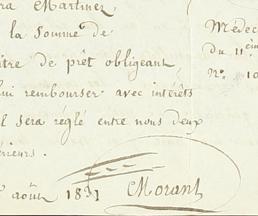 ra Martinez
la Somme de
itre de prêt obligeant
lui rembourser avec intérêts
il sera réglé entre nous deux
érieurs.
août 1831
Morant
Médec
du 11èm
N°. 10